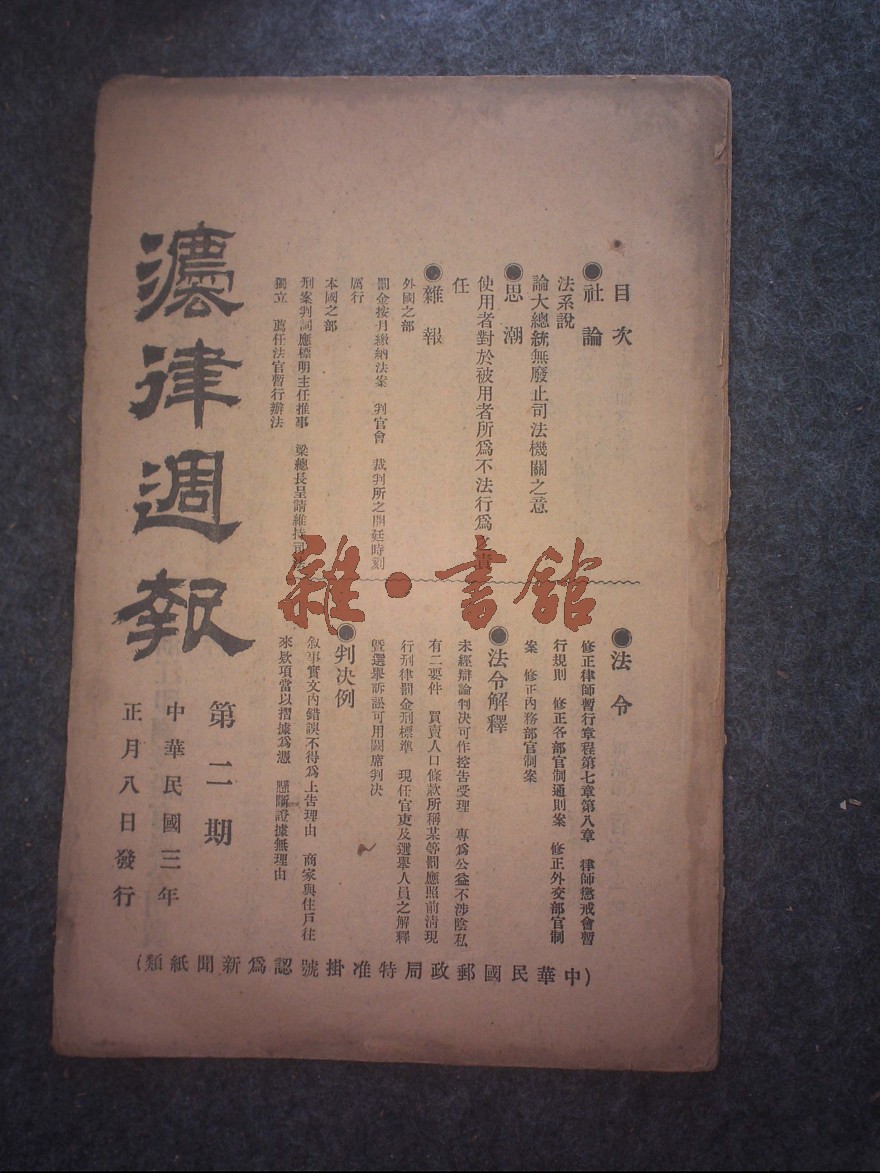 目次
●社論
法系說
論大總統無廢止司法機關之意
●思潮
使用者對於被用者所為不法行為之責
任
●雜報
外國之部
罰金按月繳納法案 判官會 裁判所之開廷時刻
厲行
本國之部
刑案判詞應標明主任推事 梁總長呈請維持司法
獨立 薦任法官暫行辦法
●法令
修正律師暫行章程第七章第八章 律師懲戒會暫
行規則 修正各部官制通則案 修正外交部官制
案 修正內務部官制案
●法令解釋
未經辯論判決可作控告受理 專為公益不涉陰私
有二要件 買賣人口條款所稱某等罰應照前清現
行刑律罰金刑標準 現任官吏及選舉人員之解釋
暨選舉訴訟可用闕席判決
●判決例
敘事實文內錯誤不得為上告理由 商家與住戶往
來欵項當以摺據為憑 懸斷證據無理由
灋律週報
第二期
中華民國三年
正月八日發行
(中華民國郵政局特准掛號認為新聞紙類)
雜·書館